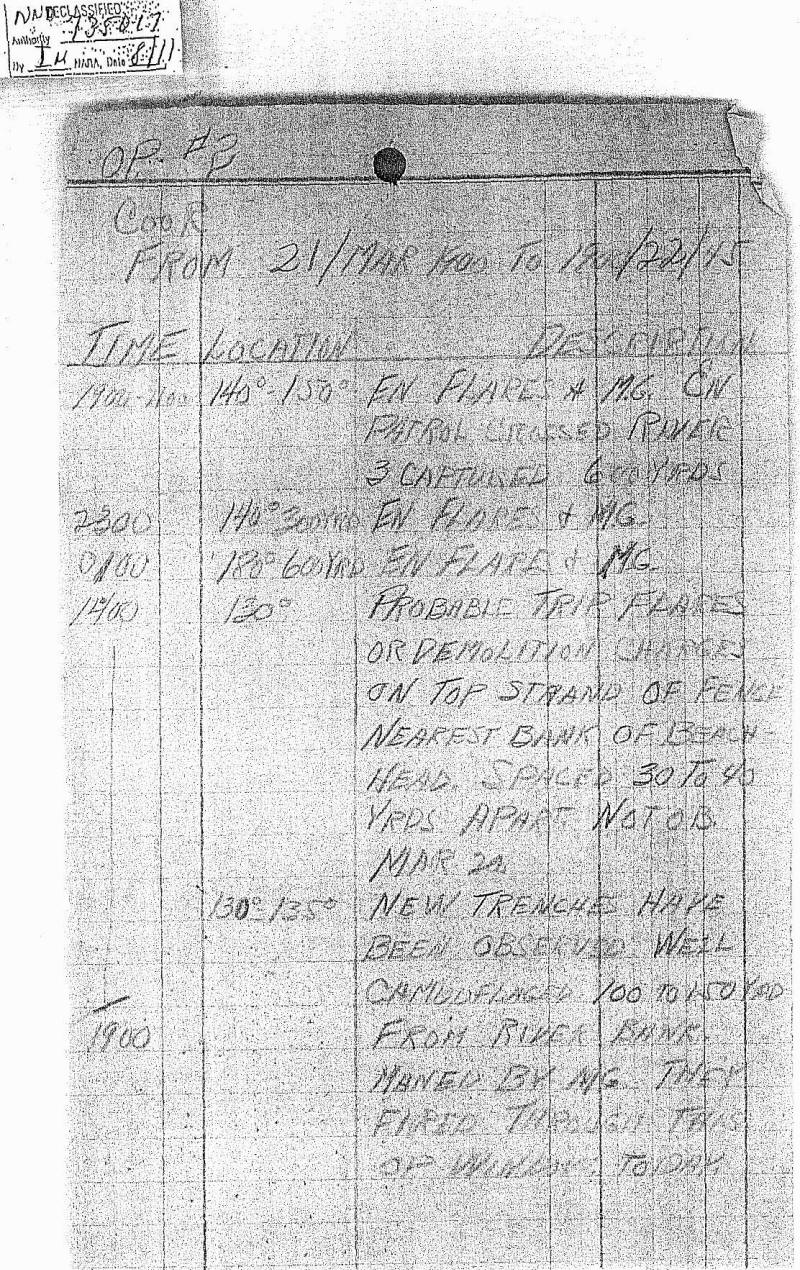 DECLASSIFIED
Authority NND 735017
By IH NARA, Date 8/11
OP. #2
COOK
FROM 21/MAR 1900 TO 1900/22/45
TIME LOCATION DESCRIPTION
1900- 140°-150° EN FLARES & MG. ON
PATROL CROSSED RIVER
3 CAPTURED 600 YRDS
2300 140° 300YRD EN FLARES & MG.
0100 180° 600YRD EN FLARE & MG.
1400 130° PROBABLE TRIP FLARES
OR DEMOLITION CHARGES
ON TOP STRAND OF FENCE
NEAREST BANK OF BEACH-
HEAD. SPACED 30 TO 40
YRDS APART. NOT OB.
MAR 22
130°-135° NEW TRENCHES HAVE
BEEN OBSERVED WELL
CAMOUFLAGED 100 TO 150 YRD
1900 FROM RIVER BANK.
MANED BY MG. THEY
FIRED THROUGH THIS
OP WINDOW TODAY